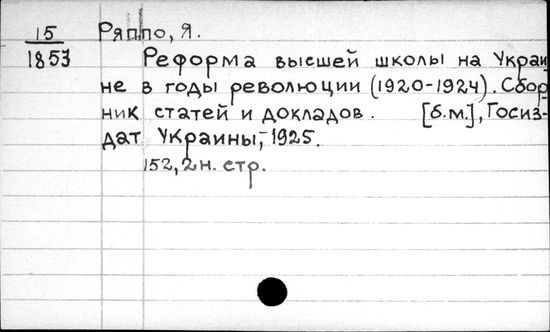 15 Ряппо, Я.
1853 Реформа высшей школы на Украи
не в годы революции (1920-1924). Сбор
ник статей и докладов. [б.м.], Госиз-
дат Украины, 1925.
152, 2н. стр.